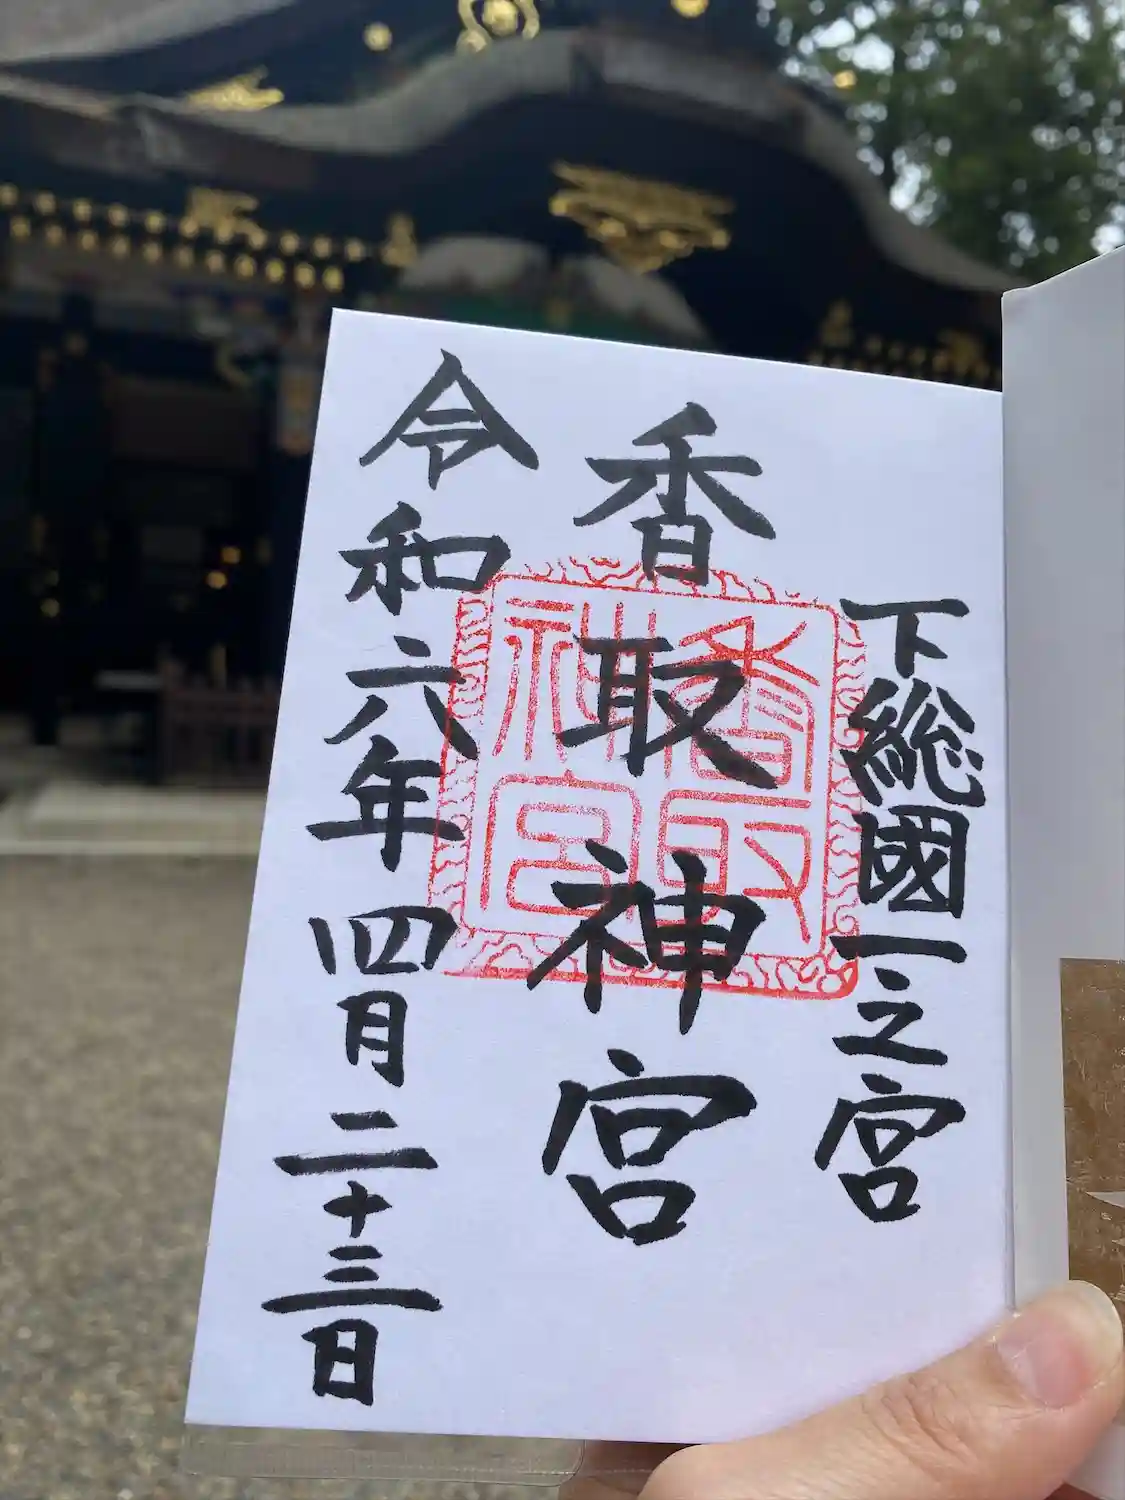 下総國一之宮
香取神宮
香取神宮
令和六年四月二十三日